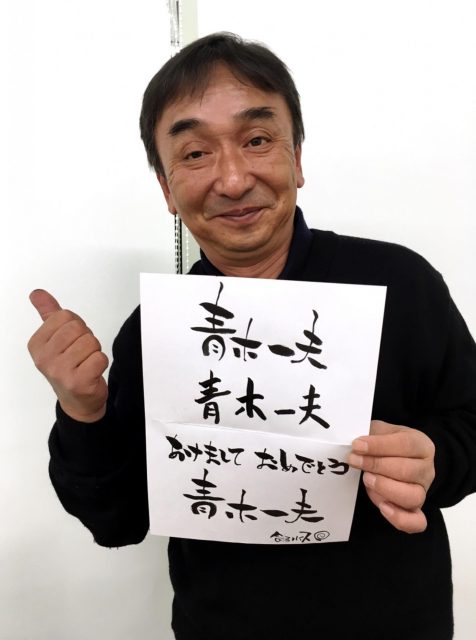 青木一夫
青木一夫
あけまして おめでとう
青木一夫